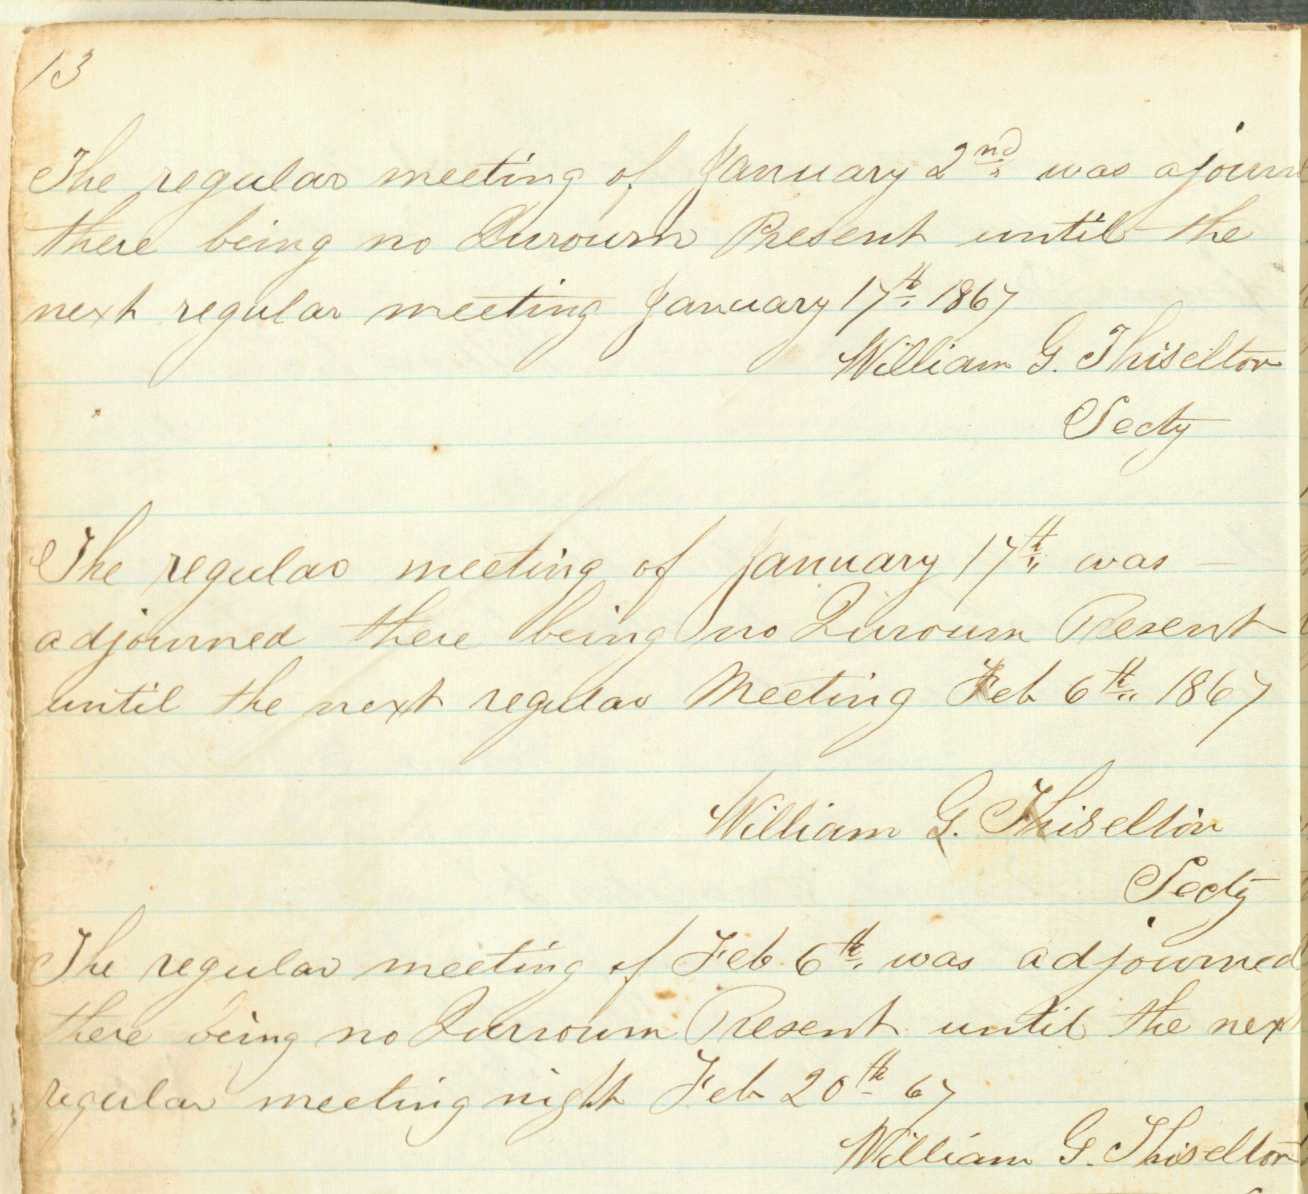 13
The regular meeting of January 2nd was ajourn
there being no Quroum Present until the
next regular meeting January 17th 1867
William G. Thiselton
Secty
The regular meeting of January 17th was —
adjourned there being no Quroum Present
until the next regular Meeting Feb 6th 1867
William G. Thiselton
Secty
The regular meeting of Feb 6th was adjourned
there being no Qurroum Present until the next
regular meeting night Feb 20th 67
William G. Thiselton